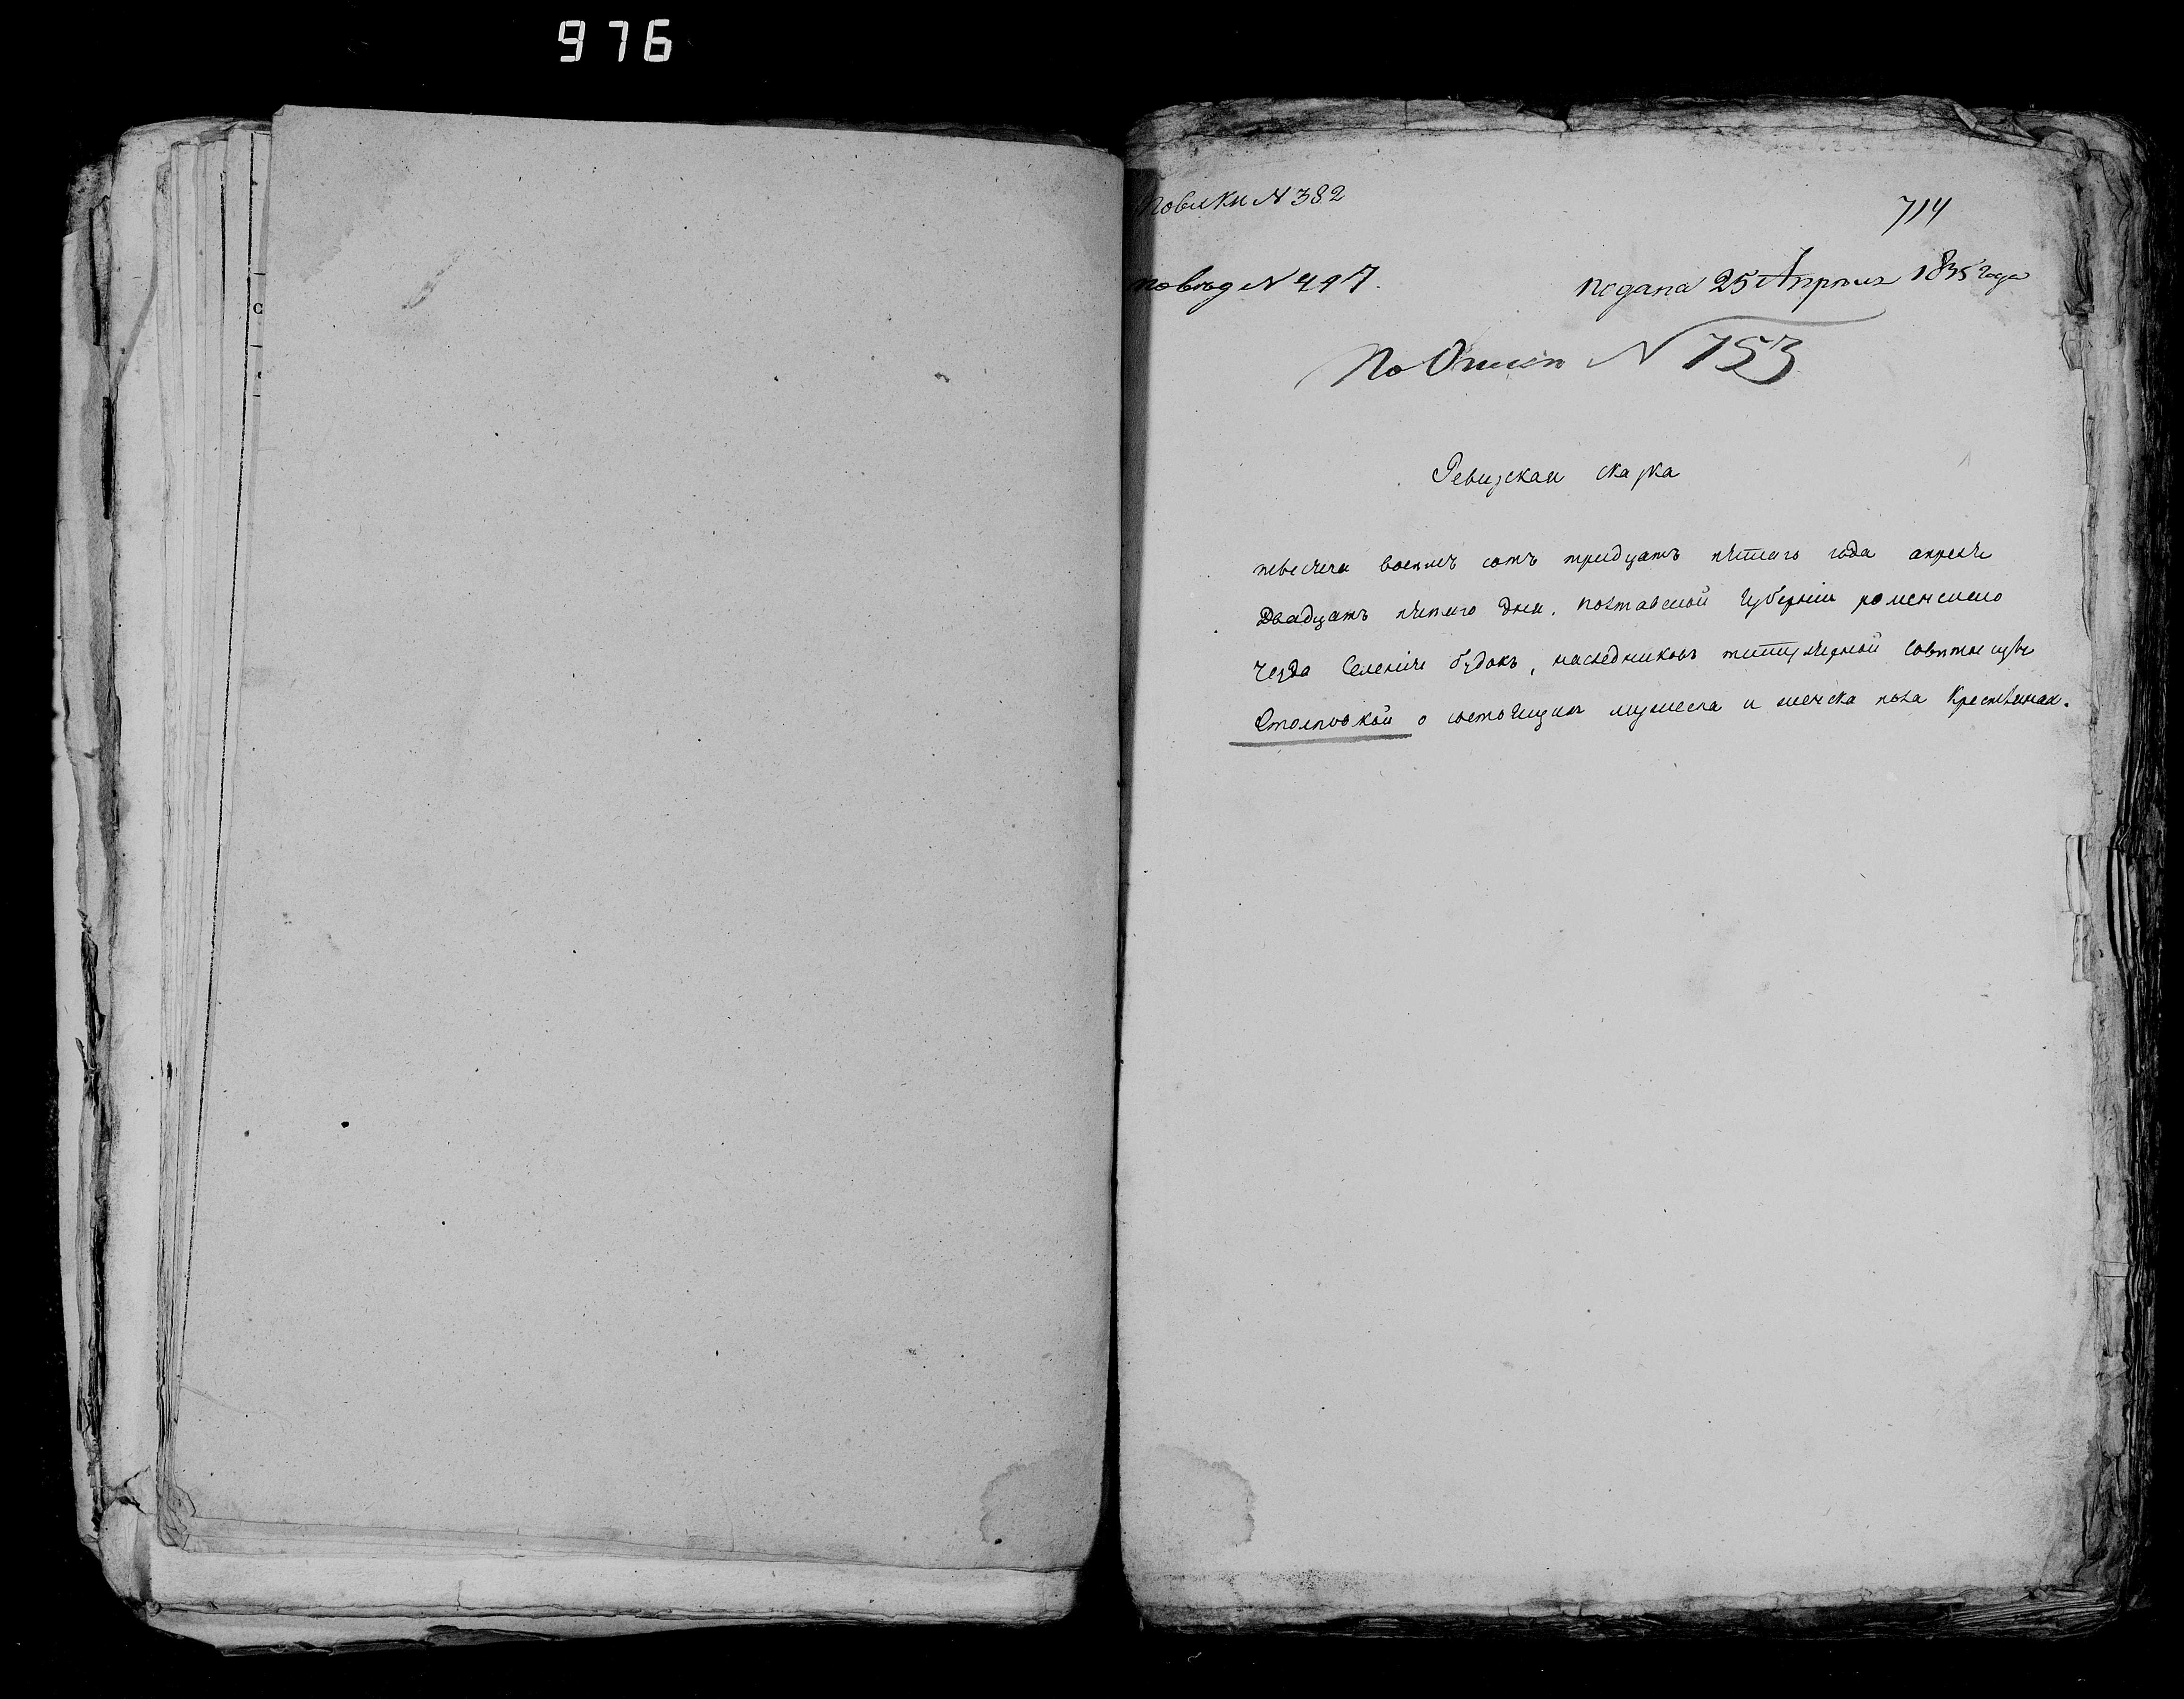 976
714
По Вѣд N 447.
Подана 25 Апрѣля 1835 года
По Описи N 753
Ревизская сказка
тысяча восемъ сотъ тридцатъ пятаго года апреля
Двадцатъ пятого дня. полтавской губерніи роменского
уезда селенія будокъ, наследниковъ титулярной советницы
Столповкой о состоящихъ мужеска и женска пола крестьянах.
С